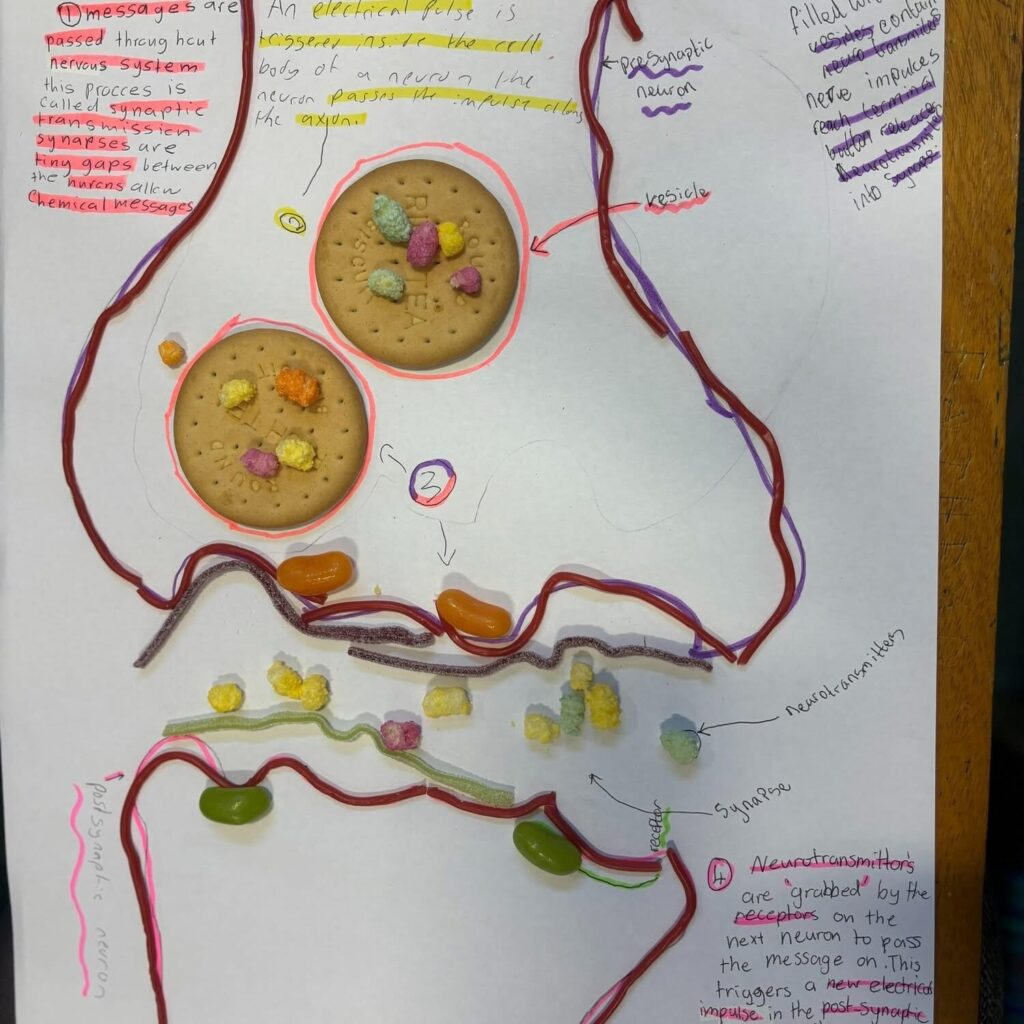 ① messages are
passed throughout
nervous system
this procces is
called synaptic
transmission
synapses are
tiny gaps between
the nurons allow
chemical messages
An electrical pulse is
triggerer inside the cell
body of a neuron the
neuron passes the impulse along
the axon.
presynaptic
neuron
filled
vesicles contain
nerve impulces
reach terminal
button releases
Neurotransmitter
into synapse.
vesicle
2
RICH TEA
ROUND
BISCUIT
ROUND
3
neurotransmitters
Synapse
receptor
postsynaptic neuron
4 Neurotransmittors
are "grabbed" by the
receptors on the
next neuron to pass
the message on. This
triggers a new electrical
impulse in the post-synaptic